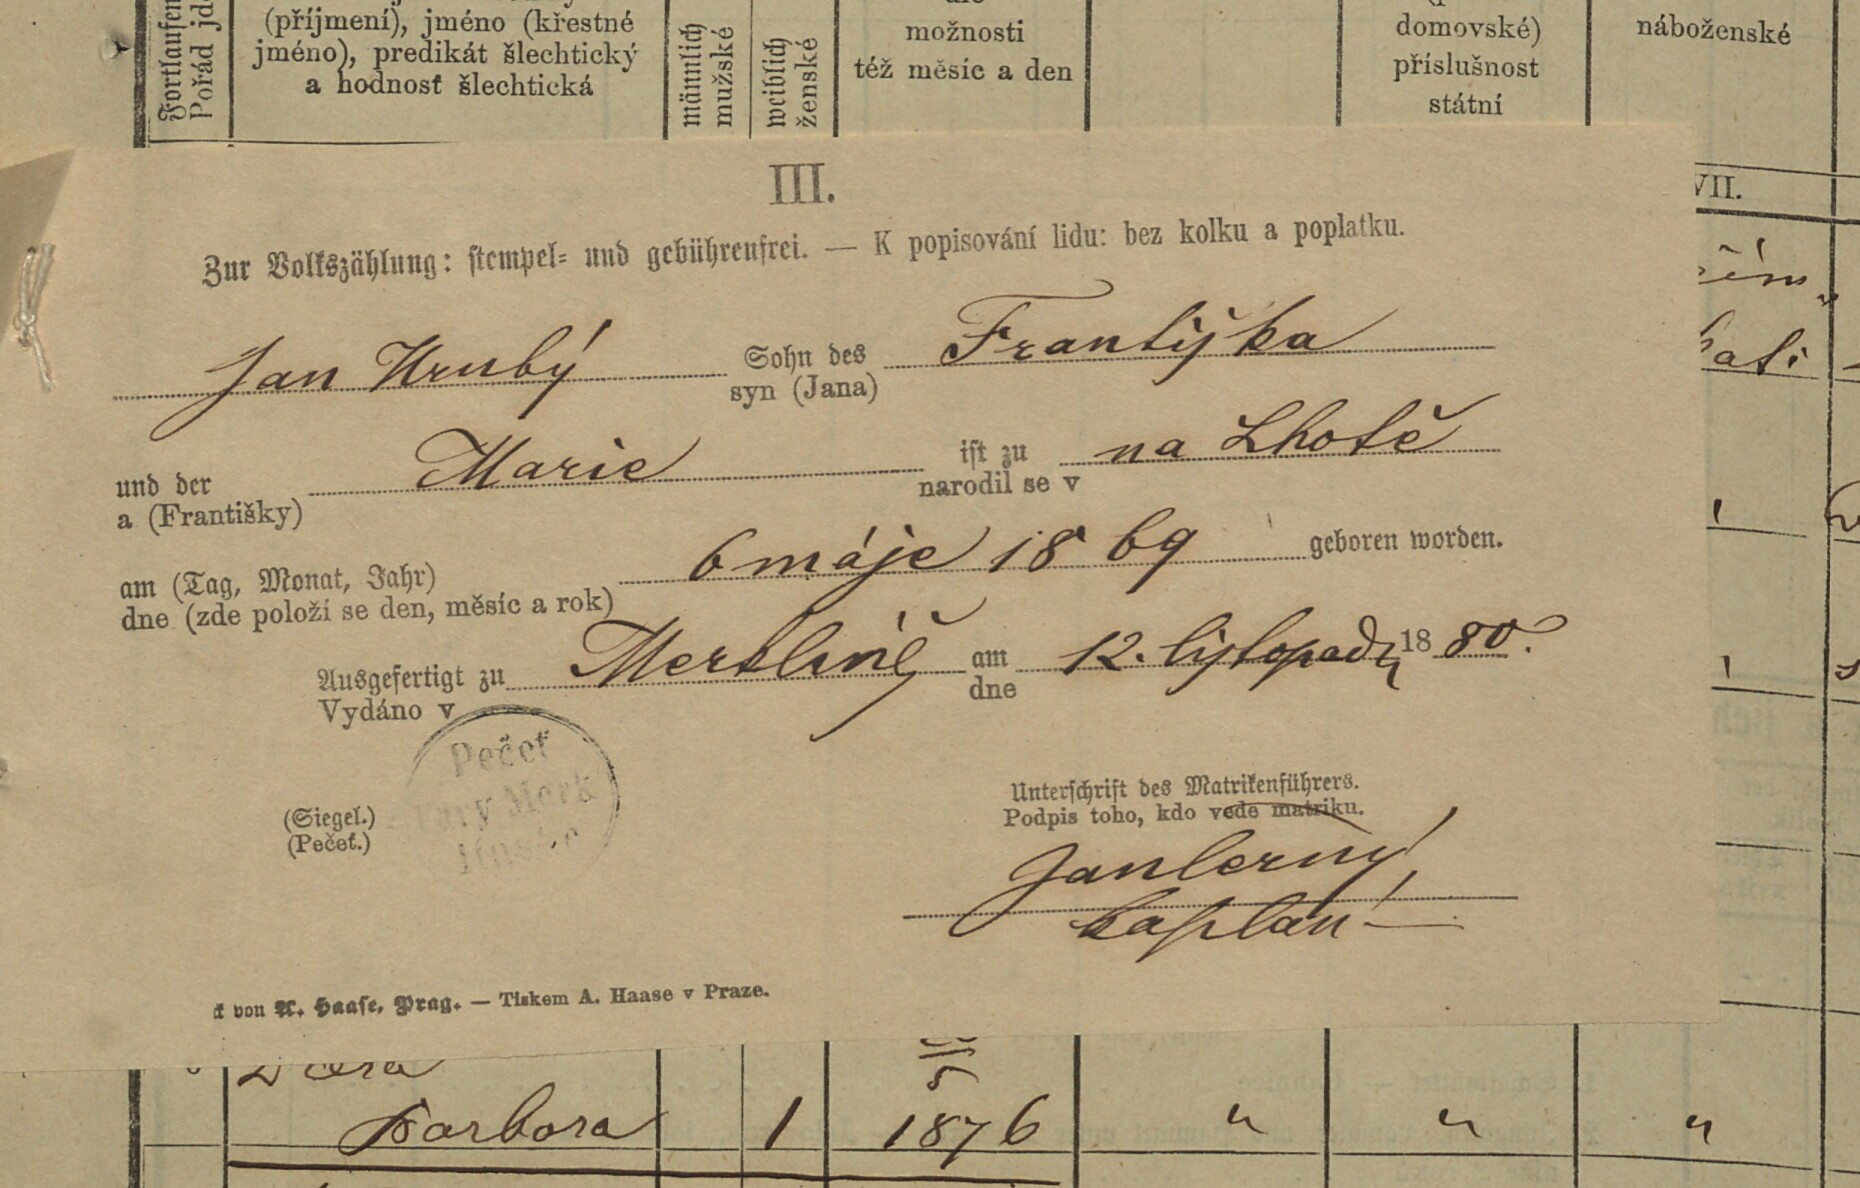 Fortlaufen
Pořád
(příjmení), jméno (křestné
jméno), predikát šlechtický
a hodnost šlechtická
männlich
mužské
weiblich
ženské
možnosti
též měsíc a den
domovské)
příslušnost
státní
náboženské
VII.
III.
Zur Volkszählung: stempel- und gebührenfrei. — K popisování lidu: bez kolku a poplatku.
Jan Hrubý Sohn des Františka
syn (Jana)
und der Marie ist zu na Lhotě
a (Františky) narodil se v
am (Tag, Monat, Jahr) 6 máje 18 69 geboren worden.
dne (zde položí se den, měsíc a rok)
Ausgefertigt zu Merklíně am 12. listopadu 18 80.
Vydáno v dne
Pečeť
Fary Merk
(Siegel.)
(Pečeť.)
Unterschrift des Matrikenführers.
Podpis toho, kdo vede matriku.
Jan Černý
kaplan
k von A. Haase, Prag. — Tiskem A. Haase v Praze.
Dcera
Barbora 1 1876 " " "